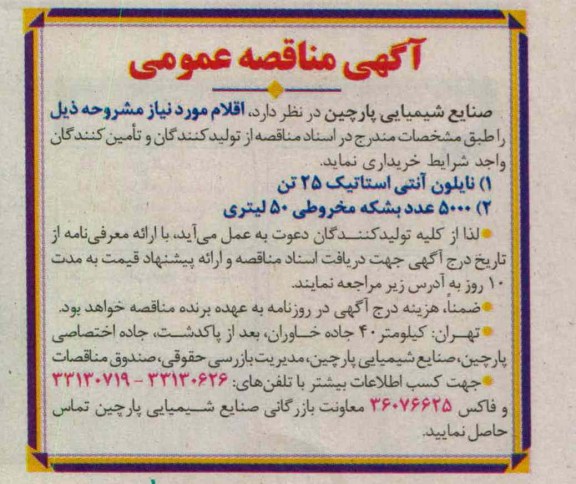 آگهی مناقصه عمومی
صنایع شیمیایی پارچین در نظر دارد، اقلام مورد نیاز مشروحه ذیل
را طبق مشخصات مندرج در اسناد مناقصه از تولیدکنندگان و تأمین‌کنندگان
واجد شرایط خریداری نماید.
۱) نایلون آنتی استاتیک ۲۵ تن
۲) ۵۰۰۰ عدد بشکه مخروطی ۵۰ لیتری
لذا از کلیه تولیدکنندگان دعوت به عمل می‌آید، با ارائه معرفی‌نامه از
تاریخ درج آگهی جهت دریافت اسناد مناقصه و ارائه پیشنهاد قیمت به مدت
۱۰ روز به آدرس زیر مراجعه نمایند.
ضمناً، هزینه درج آگهی در روزنامه به عهده برنده مناقصه خواهد بود.
تهران: کیلومتر ۴۰ جاده خاوران، بعد از پاکدشت، جاده اختصاصی
پارچین، صنایع شیمیایی پارچین، مدیریت بازرسی حقوقی، صندوق مناقصات
جهت کسب اطلاعات بیشتر با تلفن‌های: ۳۳۱۳۰۶۲۶ – ۳۳۱۳۰۷۱۹
و فاکس ۳۶۰۷۶۶۲۵ معاونت بازرگانی صنایع شیمیایی پارچین تماس
حاصل نمایید.